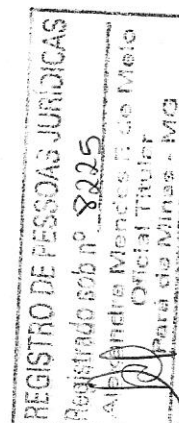 REGISTRO DE PESSOAS JURÍDICAS
Registrado sob nº 8225
Alexandre Mendes de Melo
Oficial Titular
Pará de Minas - MG